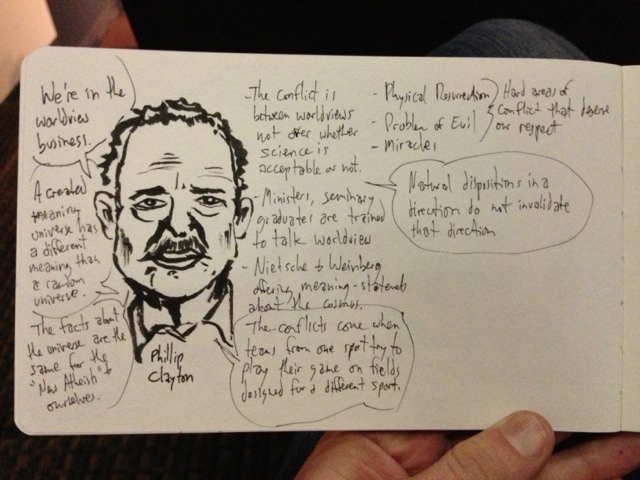 We're in the
worldview
business.
A created
meaning
universe has
a different
meaning than
a random
universe.
The facts about
the universe are the
same for the
"New Atheish" &
ourselves.
Phillip
Clayton
- The conflict is
between worldviews
not over whether
science is
acceptable or not.
- Ministers, seminary
graduates are trained
to talk worldview
- Nietsche & Weinberg
offering meaning-statements
about the cosmos.
The conflicts come when
teams from one sport try to
play their game on fields
designed for a different sport.
- Physical Resurrection
- Problem of Evil
- Miracles
Hard areas of
conflict that deserve
our respect
Natural dispositions in a
direction do not invalidate
that direction